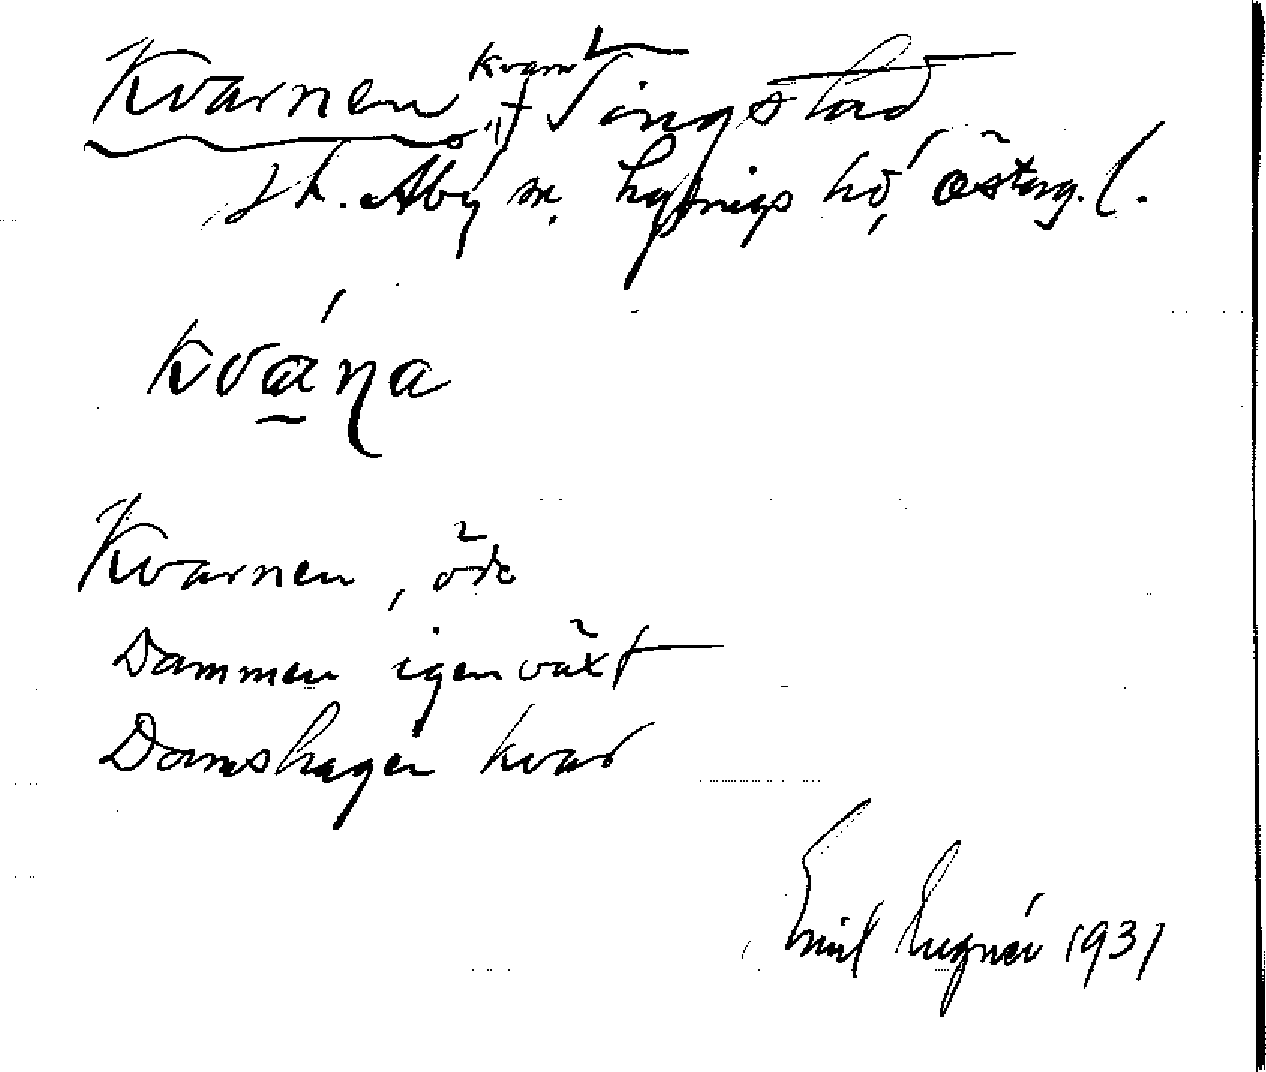 Kvarnen kvarn t Tingstad
sn. Åby m. hd, Österg. l.
kvána
Kvarnen, öde
Dammen igenväxt
Damshagen kvar
Emil Lugnér 1931